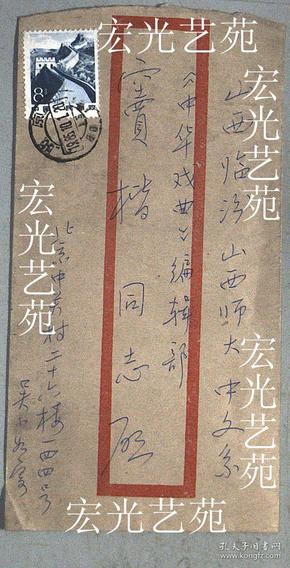 山西临汾山西师大中文系
《中华戏曲》编辑部
窦楷同志启
北京中关村二十六楼一四四号
吴小如寄
8
宏光艺苑
宏光艺苑
宏光艺苑
宏光艺苑
宏光艺苑
孔夫子旧书网
www.kongfz.com